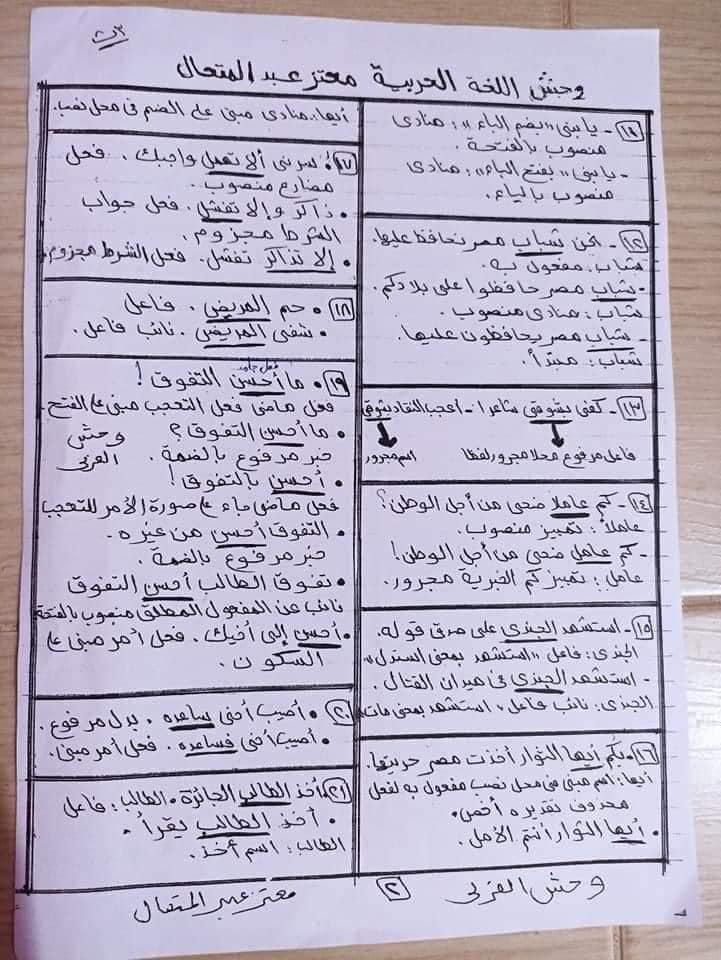 وحش اللغة العربية معتز عبد المتعال
١١- يا بنى "بضم الباء": منادى
منصوب بالفتحة.
- يا بنى "بفتح الباء": منادى
منصوب بالياء.
١٢- نحن شباب مصر نحافظ عليها.
شباب: مفعول به.
- شباب مصر حافظوا على بلادكم.
شباب: منادى منصوب.
- شباب مصر يحافظون عليها.
شباب: مبتدأ.
١٣- كفى بشوقى شاعرا - أعجب النقاد بشوقى
فاعل مرفوع محلا مجرور لفظا
اسم مجرور
١٤- كم عاملا ضحى من أجل الوطن؟
عاملا: تمييز منصوب.
- كم عامل ضحى من أجل الوطن!
عامل: تمييز كم الخبرية مجرور.
١٥- استشهد الجندى على صدق قوله.
الجندى: فاعل "استشهد بمعنى استدل"
- استشهد الجندى فى ميدان القتال.
الجندى: نائب فاعل "استشهد بمعنى مات"
١٦- بكم أيها الثوار أخذت مصر حريتها.
أيها: اسم مبنى فى محل نصب مفعول به لفعل
محذوف تقديره أخص.
• أيها الثوار أنتم الأمل.
أيها: منادى مبنى على الضم فى محل نصب.
١٧ • سرنى ألا تهمل واجبك. فعل
مضارع منصوب.
• ذاكر وإلا تفشل. فعل جواب
الشرط مجزوم.
• إلا تذاكر تفشل. فعل الشرط مجزوم.
١٨ • حم المريض. فاعل
• شفى المريض. نائب فاعل.
فعل جامد
١٩ • ما أحسن التفوق!
فعل ماضى فعل التعجب مبنى على الفتح.
• ما أحسن التفوق؟
خبر مرفوع بالضمة.
وحش
العربى
• أحسن بالتفوق!
فعل ماضى جاء على صورة الأمر للتعجب
• التفوق أحسن من غيره.
خبر مرفوع بالضمة.
• تفوق الطالب أحسن التفوق
نائب عن المفعول المطلق منصوب بالفتحة
• أحسن إلى أخيك. فعل أمر مبنى على
السكون.
٢٠ • أصيب أخى ساعده. بدل مرفوع.
• أصيب أخى فساعده. فعل أمر مبنى.
٢١ • أخذ الطالب الجائزة. الطالب: فاعل
• أخذ الطالب يقرأ.
الطالب: اسم أخذ.
وحش العربى
٢
معتز عبد المتعال